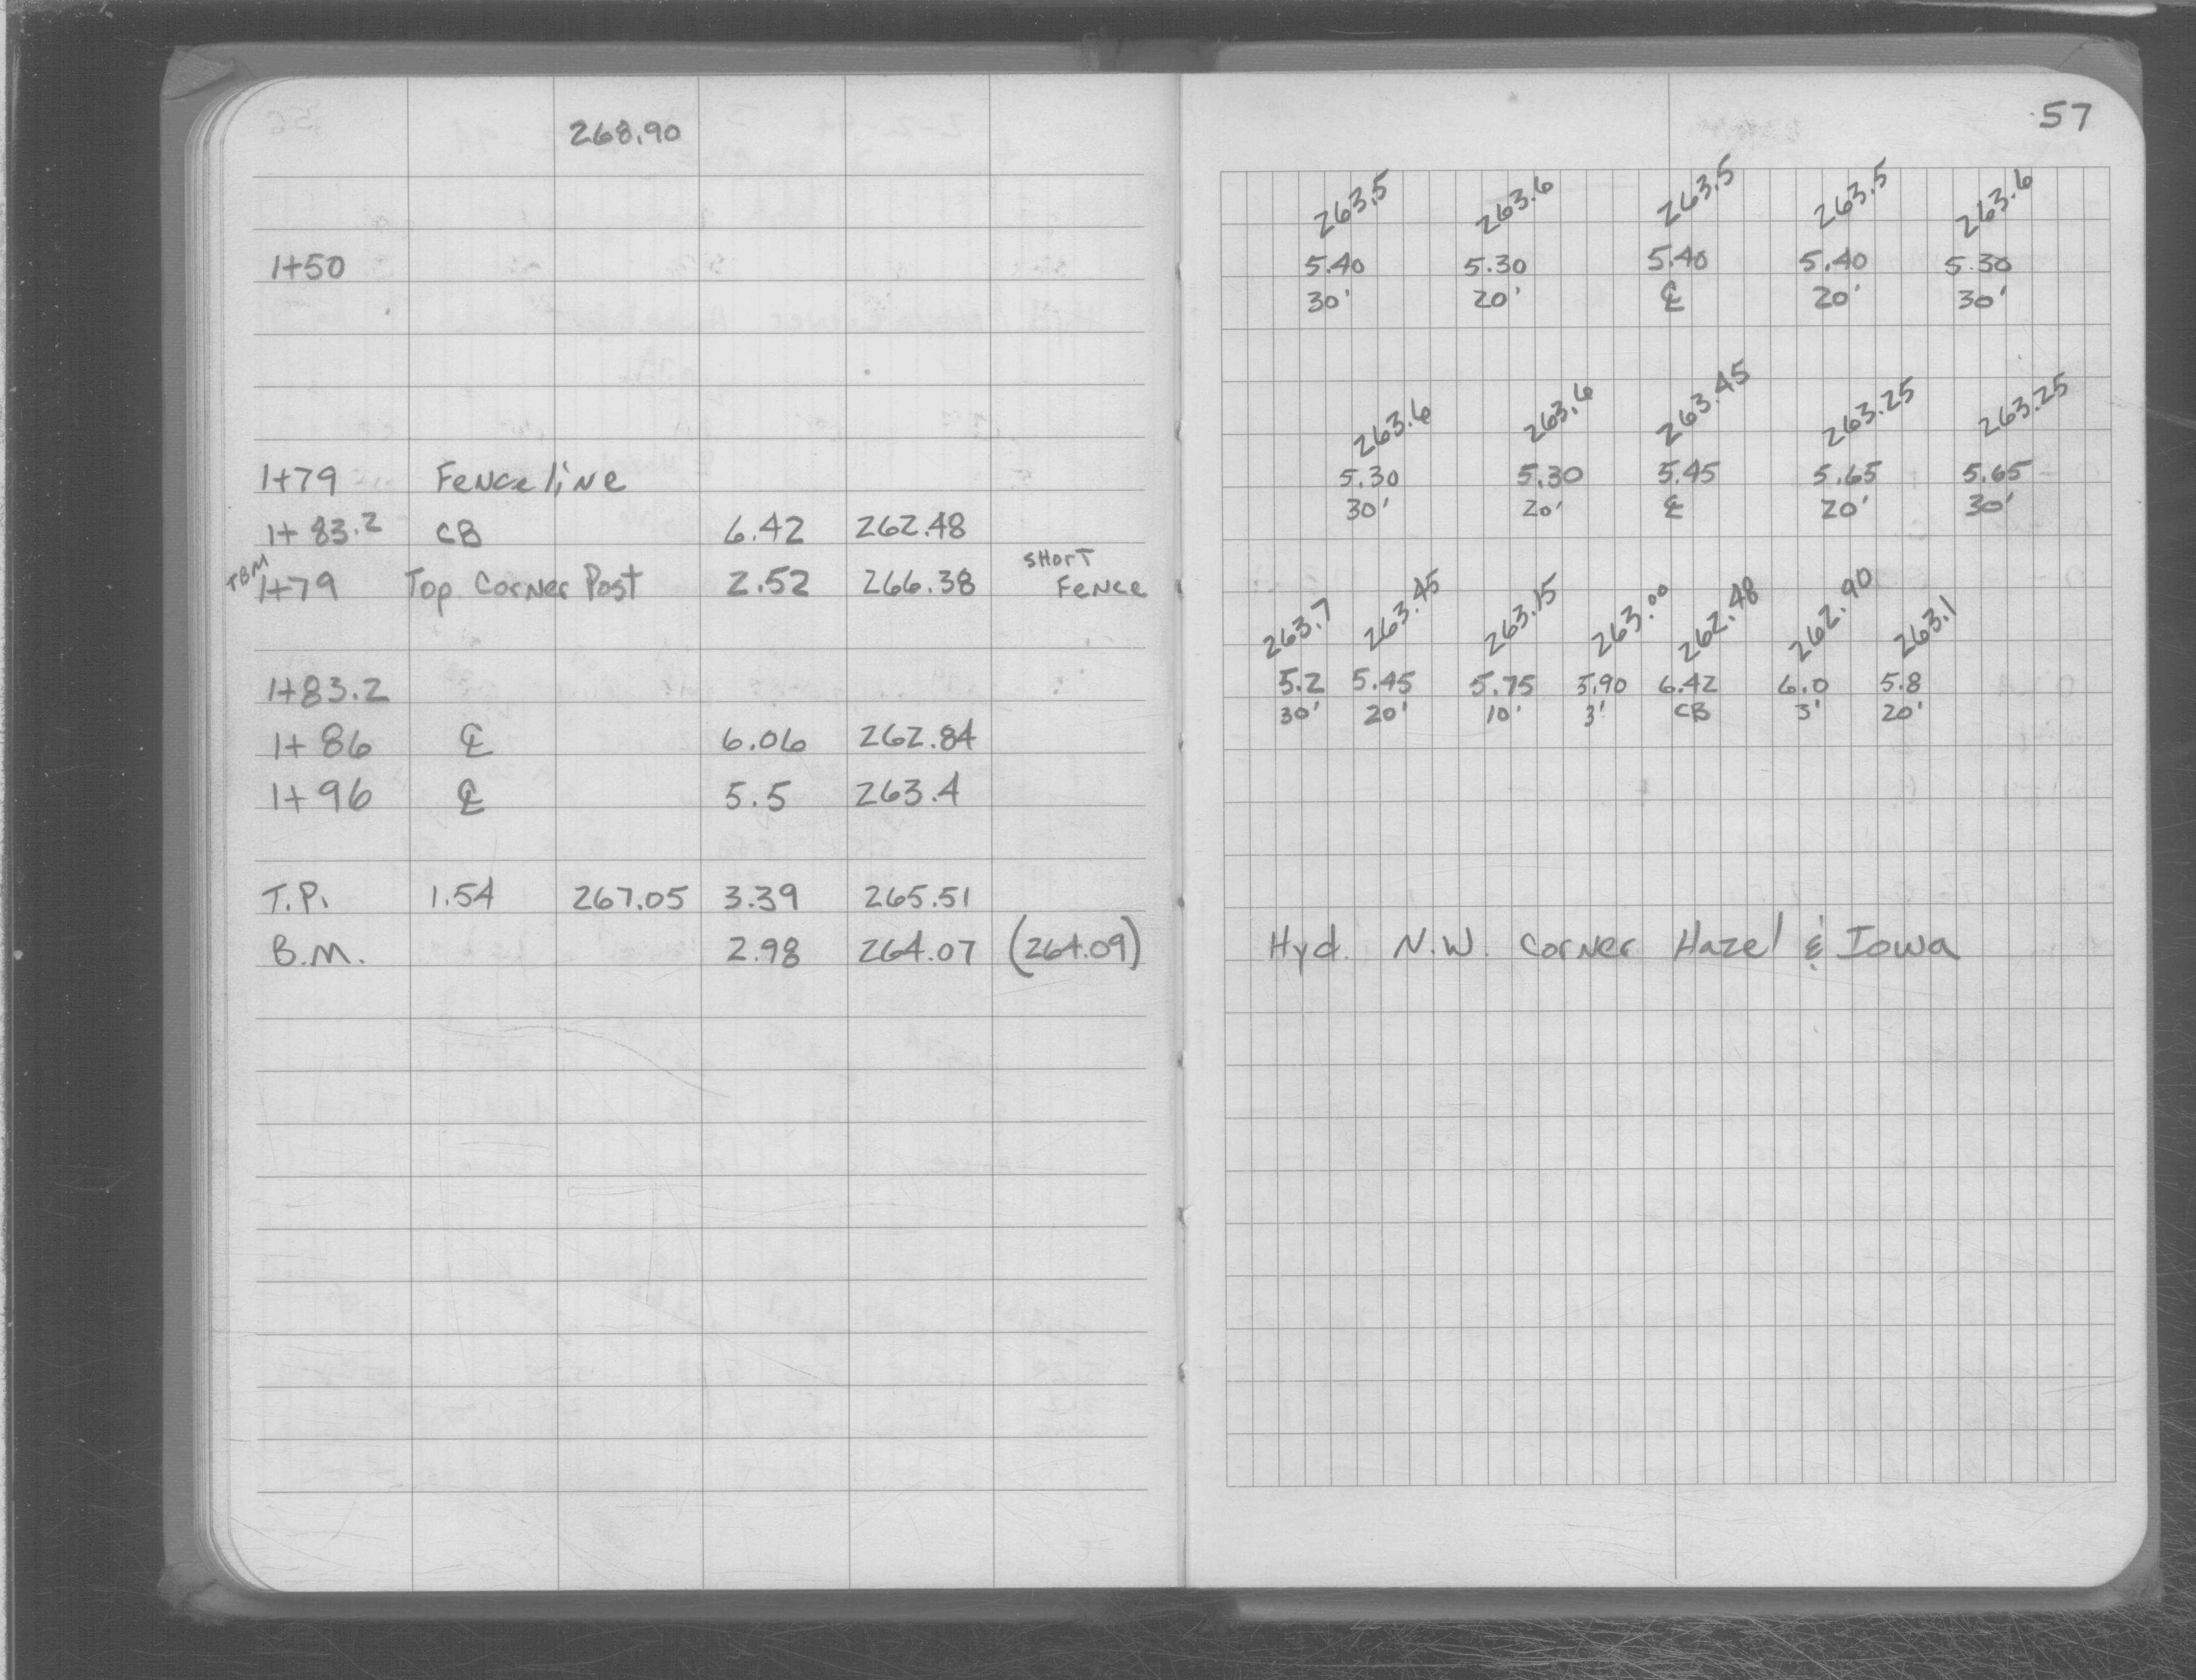 268.90
1+50
1+79 Fence line
1+83.2 CB 6.42 262.48
TBM 1+79 Top Corner Post 2.52 266.38 Short Fence
1+83.2
1+86 ℄ 6.06 262.84
1+96 ℄ 5.5 263.4
T.P. 1.54 267.05 3.39 265.51
B.M. 2.98 264.07 (264.09)
57
263.5 263.6 263.5 263.5 263.6
5.40 5.30 5.40 5.40 5.30
30' 20' ℄ 20' 30'
263.6 263.6 263.45 263.25 263.25
5.30 5.30 5.45 5.65 5.65
30' 20' ℄ 20' 30'
263.7 263.45 263.15 263.00 262.48 262.90 263.1
5.2 5.45 5.75 5.90 6.42 6.0 5.8
30' 20' 10' 3' CB 3' 20'
Hyd. N.W. Corner Hazel & Iowa